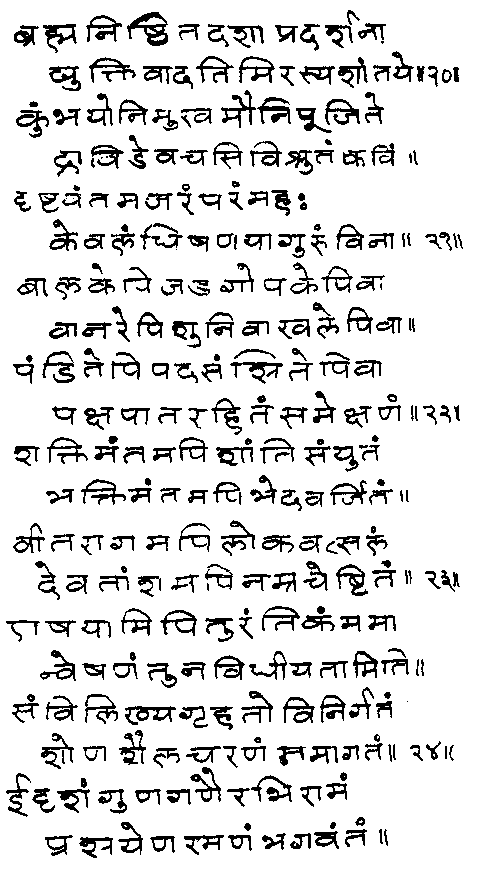 ब्रह्मनिष्ठितदशाप्रदर्शना
द्युक्तिवादतिमिरस्यशांतये॥२०॥
कुंभयोनिमुखमौनिपूजिते
द्राविडेवचसिविश्रुतंकविं॥
दृष्टवंतमजरंपरंमहः
केवलंधिषणयागुरुंविना॥ २१॥
बालकेपिजडगोपकेपिवा
वानरेपिशुनिवाखलेपिवा॥
पंडितेपिपदसंश्रितेपिवा
पक्षपातरहितंसमेक्षणं॥२२॥
शक्तिमंतमपिशांतिसंयुतं
भक्तिमंतमपिभेदवर्जितं॥
वीतरागमपिलोकवत्सलं
देवतांशमपिनम्रचेष्टितं॥ २३॥
एषयामिपितुरंतिकंममा
न्वेषणंतुनविधीयतामिति॥
संविलिख्यगृहतोविनिर्गतं
शोणशैलचरणंसमागतं॥ २४॥
ईदृशंगुणगणैरभिरामं
प्रश्रयेणरमणंभगवंतं॥